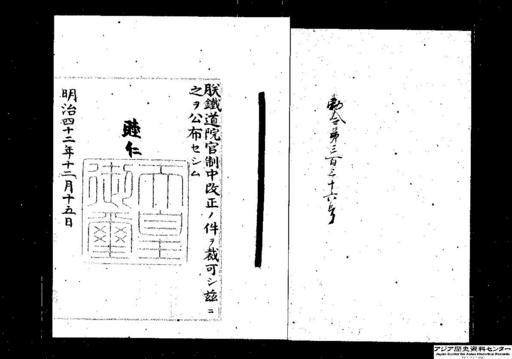 勅令第三百三十六号
朕鐵道院官制中改正ノ件ヲ裁可シ茲ニ
之ヲ公布セシム
睦仁
天皇
御璽
明治四十二年十二月十五日
アジア歴史資料センター
Japan Center for Asian Historical Records